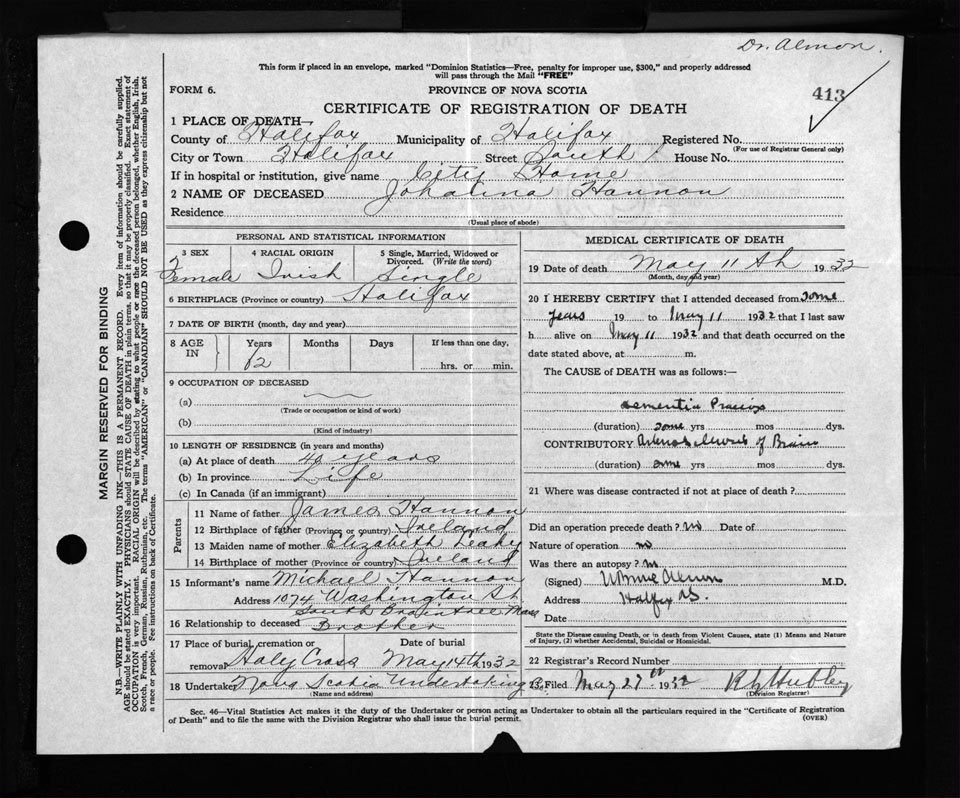 Dr. Almon.
This form if placed in an envelope, marked "Dominion Statistics—Free, penalty for improper use, $300," and properly addressed
will pass through the Mail "FREE"
FORM 6.
PROVINCE OF NOVA SCOTIA
413
CERTIFICATE OF REGISTRATION OF DEATH
1 PLACE OF DEATH—
County of Halifax Municipality of Halifax Registered No.
(For use of Registrar General only)
City or Town Halifax Street South House No.
If in hospital or institution, give name City Home
2 NAME OF DECEASED Johanna Hannon
Residence
(Usual place of abode)
PERSONAL AND STATISTICAL INFORMATION
3 SEX 4 RACIAL ORIGIN 5 Single, Married, Widowed or Divorced. (Write the word)
Female Irish Single
6 BIRTHPLACE (Province or country) Halifax
7 DATE OF BIRTH (month, day and year)
8 AGE IN Years Months Days If less than one day,
62 hrs. or min.
9 OCCUPATION OF DECEASED
(a)
(Trade or occupation or kind of work)
(b)
(Kind of industry)
10 LENGTH OF RESIDENCE (in years and months)
(a) At place of death years
(b) In province Life
(c) In Canada (if an immigrant)
Parents
11 Name of father James Hannon
12 Birthplace of father (Province or country) Ireland
13 Maiden name of mother Elizabeth Leahy
14 Birthplace of mother (Province or country) Ireland
15 Informant's name Michael Hannon
Address 1074 Washington St.
South Braintree Mass
16 Relationship to deceased Brother
17 Place of burial, cremation or removal Date of burial
Holy Cross May 14th 1932
18 Undertaker Nova Scotia Undertaking Co.
(Name and address)
MEDICAL CERTIFICATE OF DEATH
19 Date of death May 11th 1932
(Month, day and year)
20 I HEREBY CERTIFY that I attended deceased from some
years 19 to May 11 1932 that I last saw
h alive on May 11 1932 and that death occurred on the
date stated above, at m.
The CAUSE of DEATH was as follows:—
Dementia Praecox
(duration) some yrs mos dys.
CONTRIBUTORY of Brain
(duration) some yrs mos dys.
21 Where was disease contracted if not at place of death?
Did an operation precede death? no Date of
Nature of operation no
Was there an autopsy? no
(Signed) Almon M.D.
Address Halifax N.S.
Date
State the Disease causing Death, or in death from Violent Causes, state (1) Means and Nature
of Injury, (2) whether Accidental, Suicidal or Homicidal.
22 Registrar's Record Number
Filed May 27th 1932 Hubley
(Division Registrar)
Sec. 46—Vital Statistics Act makes it the duty of the Undertaker or person acting as Undertaker to obtain all the particulars required in the "Certificate of Registration
of Death" and to file the same with the Division Registrar who shall issue the burial permit.
(OVER)
MARGIN RESERVED FOR BINDING
N.B.—WRITE PLAINLY WITH UNFADING INK—THIS IS A PERMANENT RECORD. Every item of information should be carefully supplied.
AGE should be stated EXACTLY. PHYSICIANS should STATE CAUSE OF DEATH in plain terms, so that it may be properly classified. Exact statement of
OCCUPATION is very important. RACIAL ORIGIN will be described by stating to what people or race the deceased person belonged, whether English, Irish,
Scotch, French, German, Russian, Ruthenian, etc. The terms "AMERICAN" or "CANADIAN" SHOULD NOT BE USED as they express citizenship but not
a race or people. See instructions on back of Certificate.